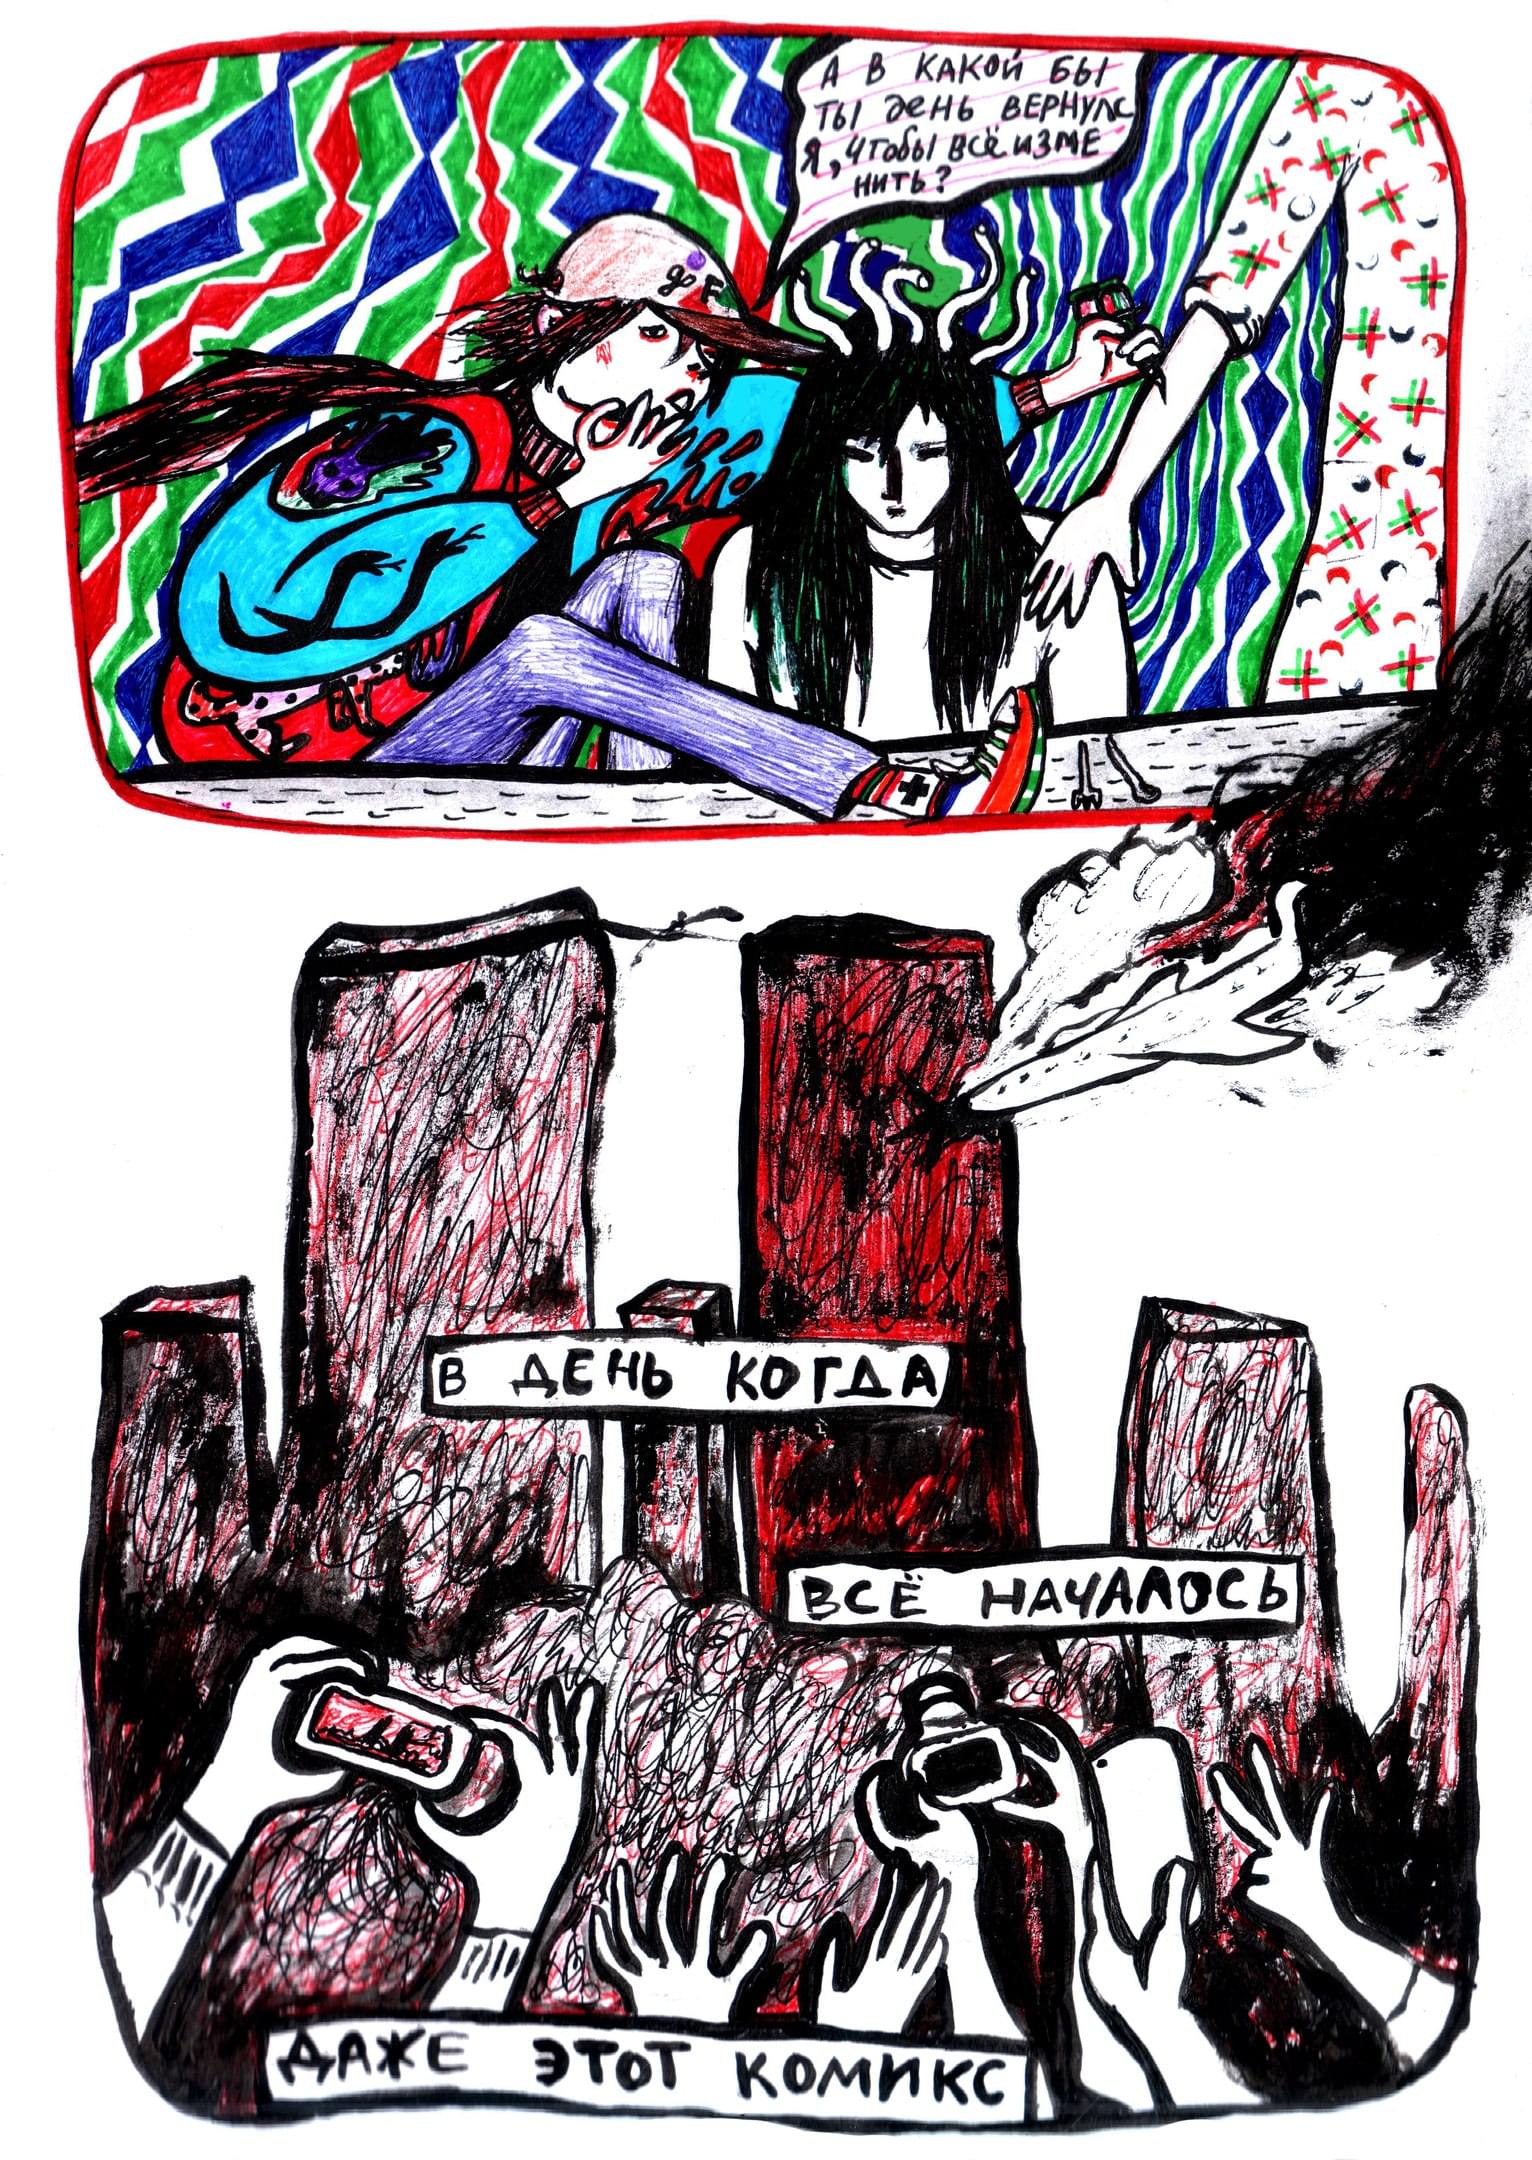 А В КАКОЙ БЫ
ТЫ ДЕНЬ ВЕРНУЛС
Я, ЧТОБЫ ВСЁ ИЗМЕ
НИТЬ?
В ДЕНЬ КОГДА
ВСЁ НАЧАЛОСЬ
ДАЖЕ ЭТОТ КОМИКС